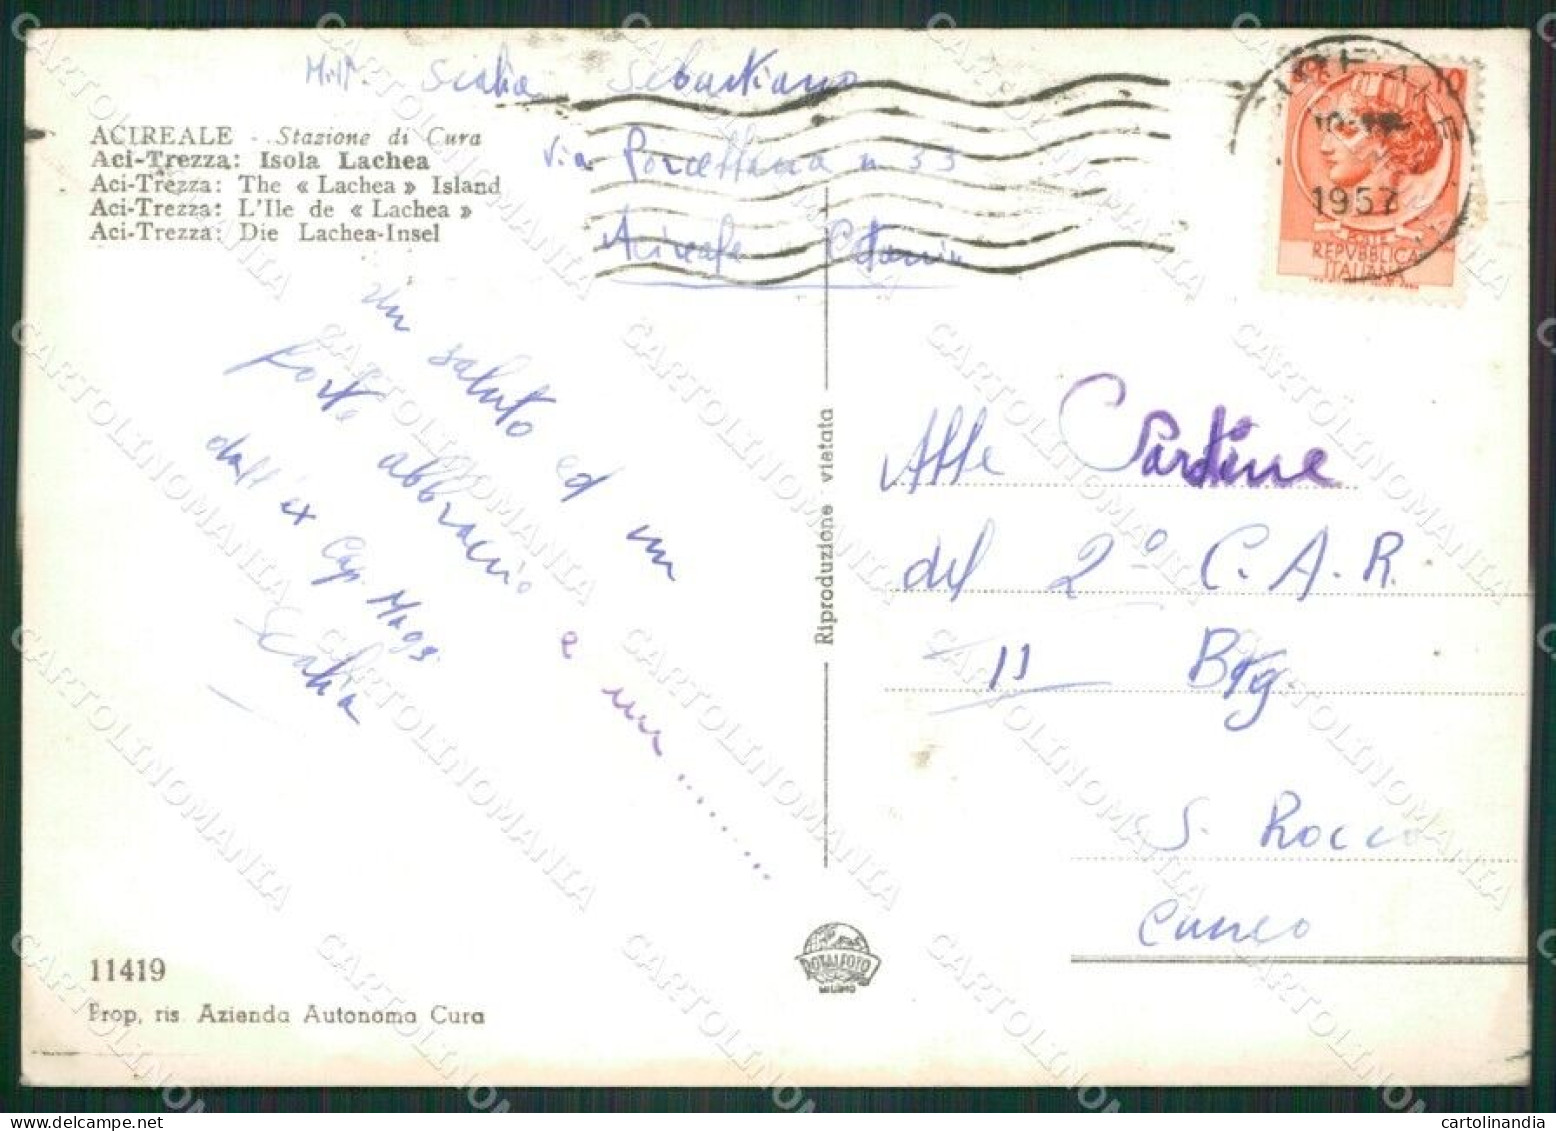 Mitt. Scalia Sebastiano
Via Porcettana n 33
Acireale Catania
ACIREALE - Stazione di Cura
Aci-Trezza: Isola Lachea
Aci-Trezza: The « Lachea » Island
Aci-Trezza: L'Ile de « Lachea »
Aci-Trezza: Die Lachea-Insel
10
1957
POSTE
REPVBBLICA
ITALIANA
Un saluto ed un
forte abbraccio e un..........
dall'ex Cap. Magg.
Scalia
Riproduzione vietata
Alle Cartine
del 2º C.A.R.
II Btg.
S. Rocco
Cuneo
11419
Prop. ris. Azienda Autonoma Cura
ROTALFOTO
MILANO
CARTOLINOMANIA
cartolinandia